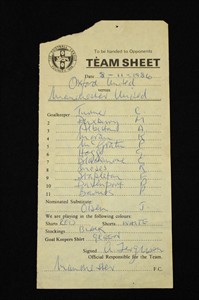 To be handed to Opponents
TEAM SHEET
Date 8-11-1986
Oxford United
versus
Manchester United
Goalkeeper Turner C
2 Duxbury M
3 Albiston A
4 Moran K
5 McGrath P
6 Hogg G
7 Blackmore C
8 Moses R
9 Stapleton F
10 Davenport P
11 Barnes
Nominated Substitute:
Olsen J
We are playing in the following colours:
Shirts RED Shorts WHITE
Stockings BLACK
Goal Keepers Shirt GREEN
Signed A Ferguson
Official Responsible for the Team.
Manchester F.C.